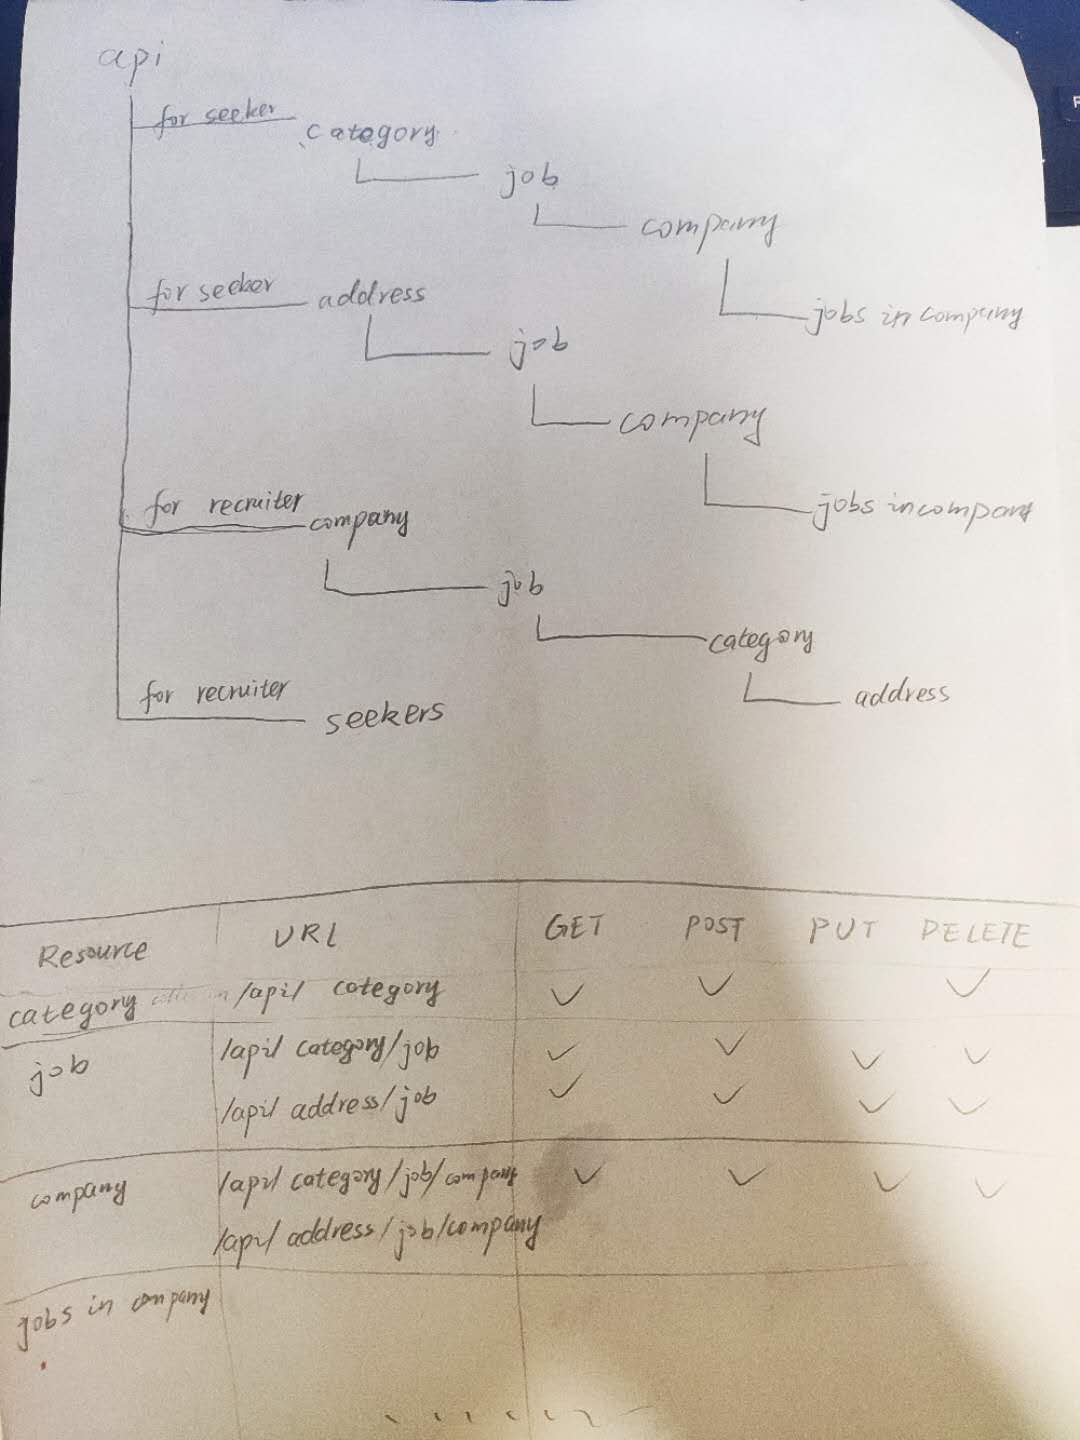 api
for seeker category
job
company
jobs in company
for seeker address
job
company
jobs in company
for recruiter company
job
category
address
for recruiter seekers
Resource URL GET POST PUT DELETE
category /api/ category ✓ ✓ ✓
job /api/ category/job ✓ ✓ ✓ ✓
/api/ address/job ✓ ✓ ✓ ✓
company /api/ category/job/company ✓ ✓ ✓ ✓
/api/ address/job/company
jobs in company